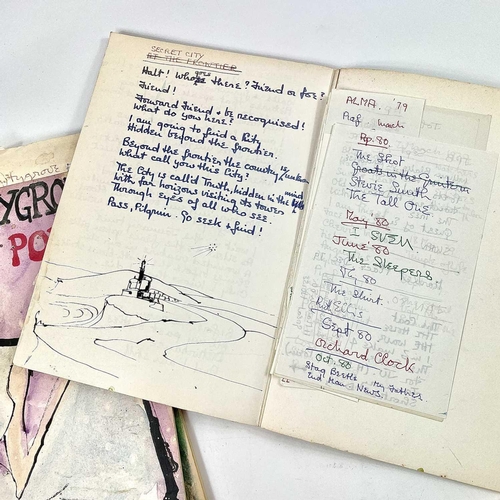 SECRET CITY
AT THE FRONTIER
Halt! Who goes there? Friend or foe?
Friend!
Forward Friend & be recognised!
What do you here?
I am going to find a City
Hidden beyond the frontier.
Beyond the frontier the country is unknown
What call you this City?
The City is called Truth, hidden in the mind
With far horizons visiting its tower
Through eyes of all who see.
Pass, Pilgrim. Go seek & find!
YGRO
PO
ALMA. '79
Ap. 80.
The Shot
Stevie Smith
The Tall One
May '80
I SVEN
June '80
The Sleepers
Jly 80
The Shirt.
Sept 80
Orchard Clock
Oct. 80
Stag Beetle. My Father
End. Man. News.